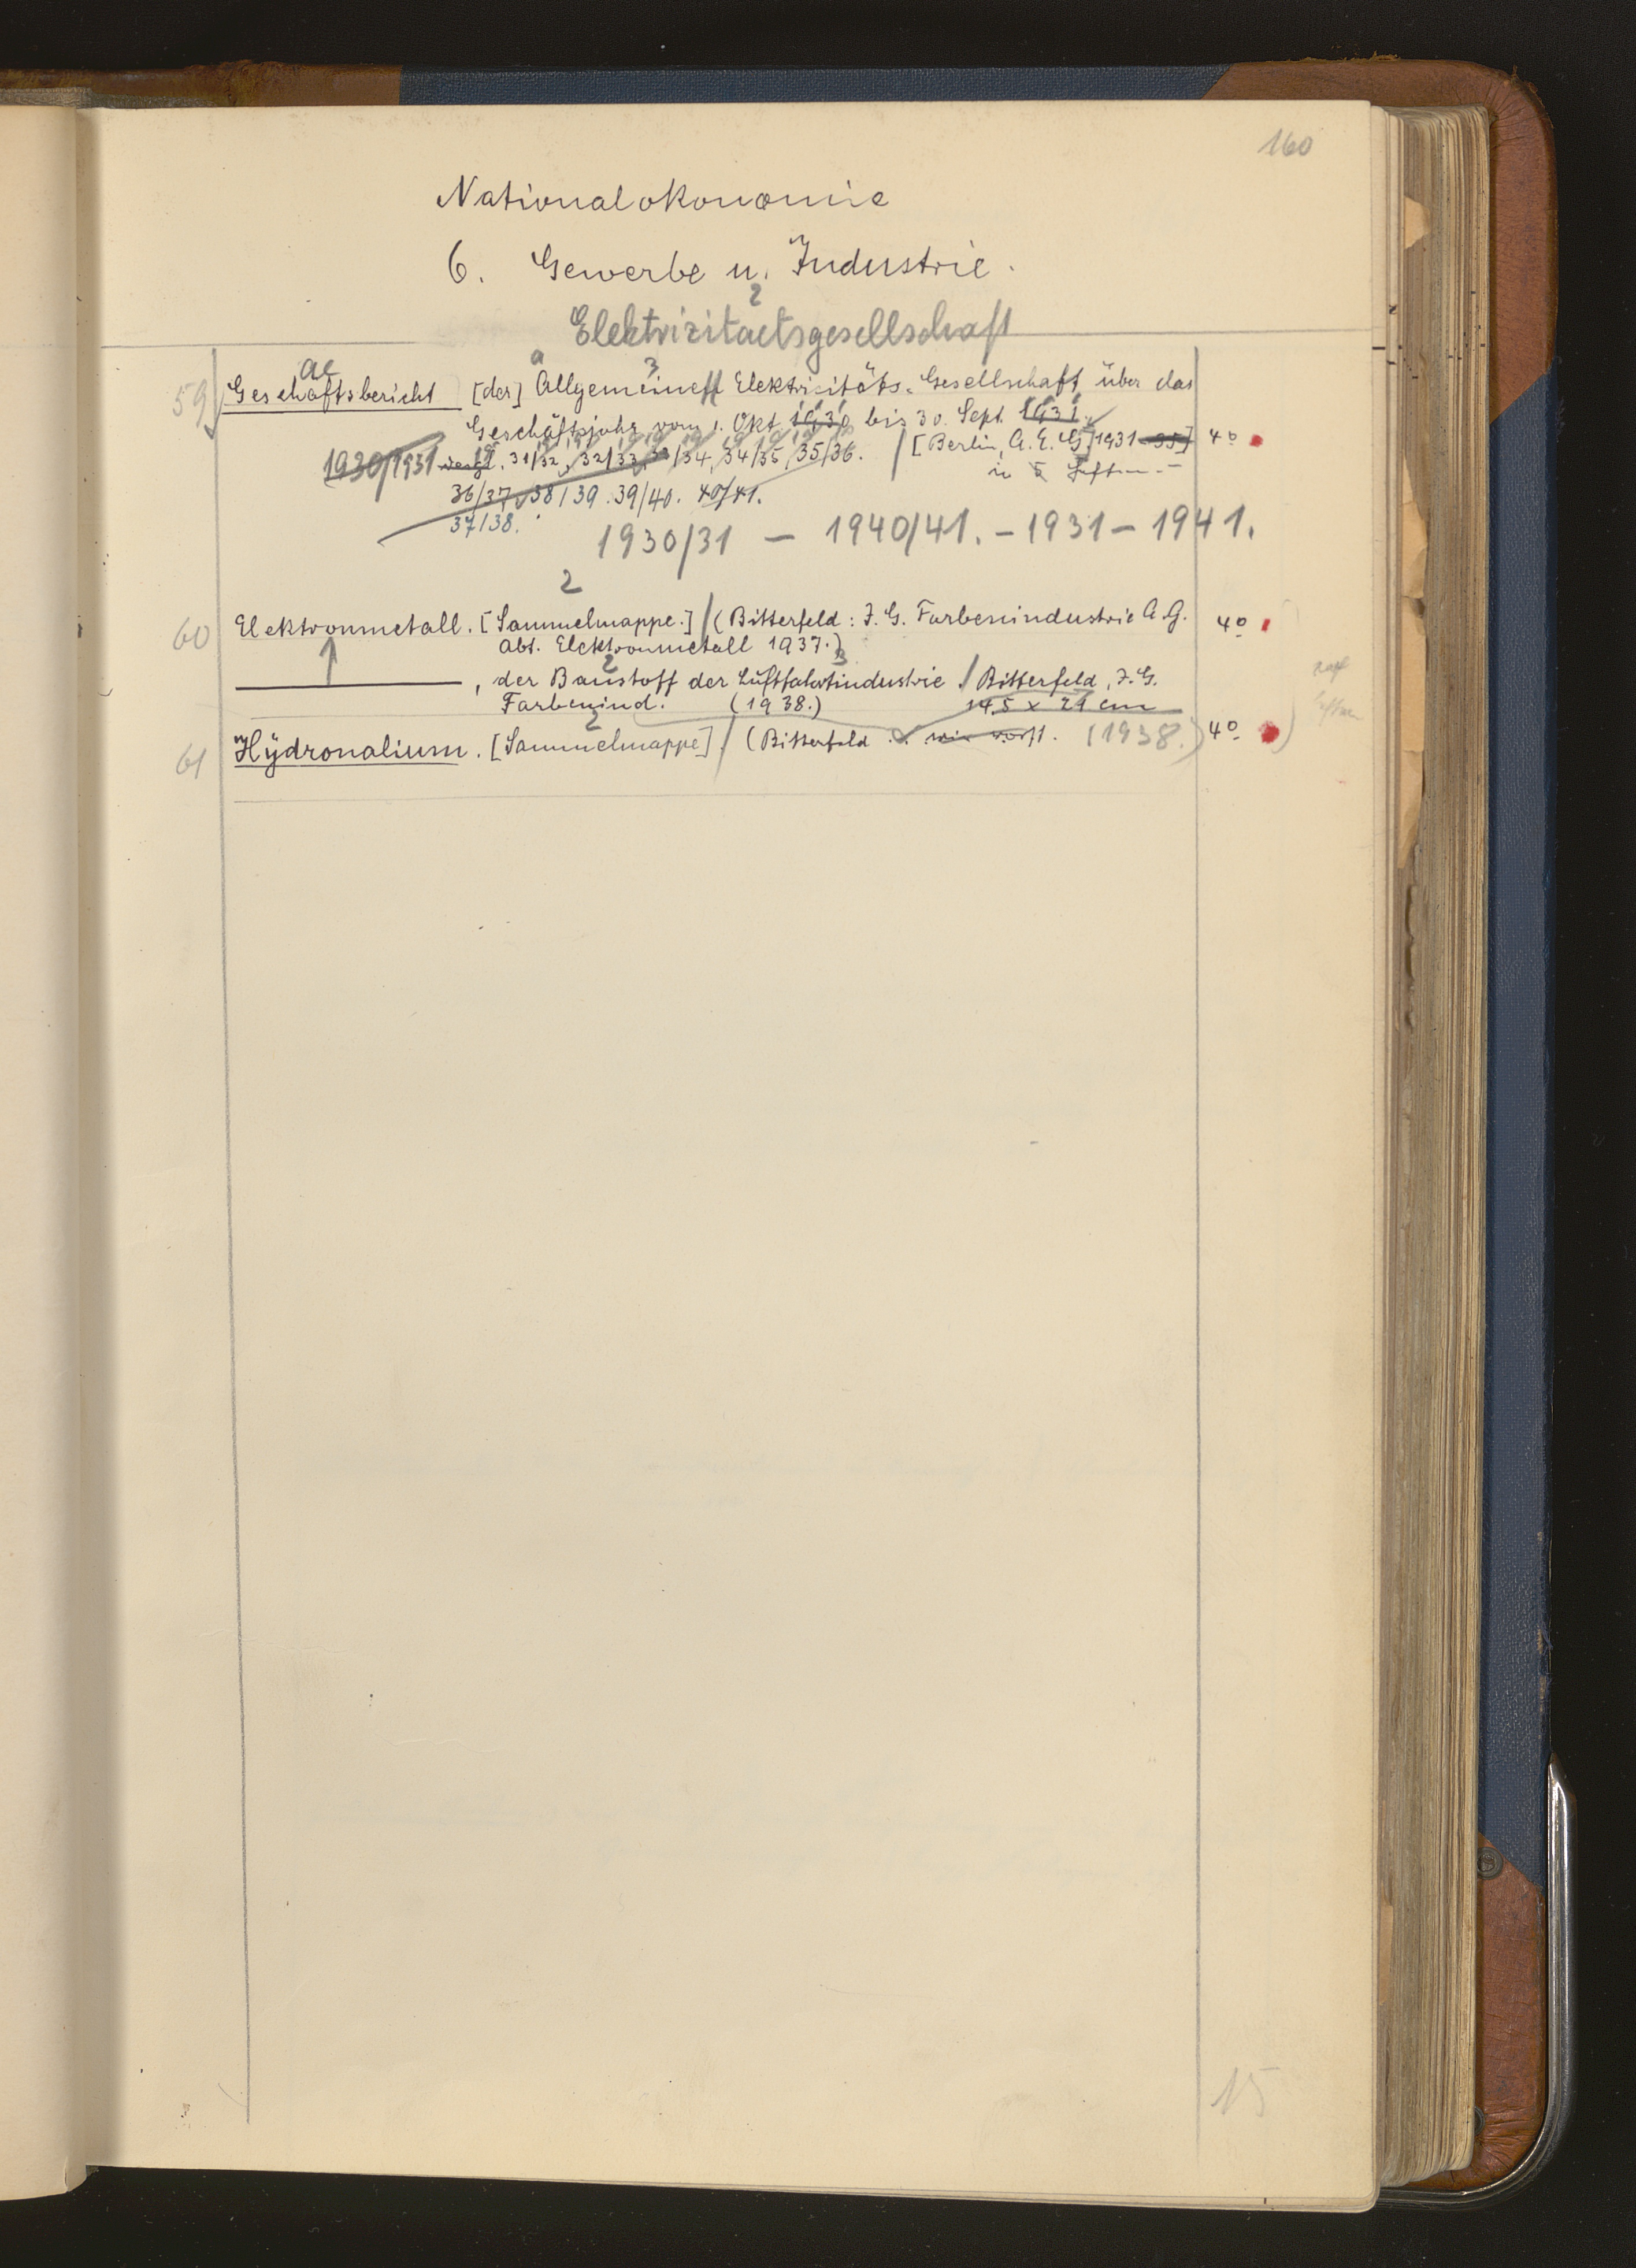 160
Nationalökonomie
6. Gewerbe u. Industrie.
2
Elektrizitaetsgesellschaft
ae a 3
59 Geschäftsbericht [der] Allgemeinen Elektricitäts-Gesellschaft über das
Geschäftsjahr vom 1. Okt. 1930 bis 30. Sept. 1931.
1930/1931 31/32, 32/33, 33/34, 34/35, 35/36. / [Berlin, A.E.G.] 1931-35] 4°
in 5
36/37, 38/39. 39/40. 40/41.
37/38.
1930/31 – 1940/41. – 1931 – 1941.
2
60 Elektronmetall. [Sammelmappe.] / (Bitterfeld: I.G. Farbenindustrie A.G. 4°
Abt. Elektronmetall 1937.)
2 3
———, der Baustoff der Luftfahrtindustrie. / Bitterfeld, I.G.
Farbenind. (1938.) 14,5 x 21 cm
2
61 Hydronalium. [Sammelmappe] / (Bitterfeld .. wie vorst. (1938.) 4°
15